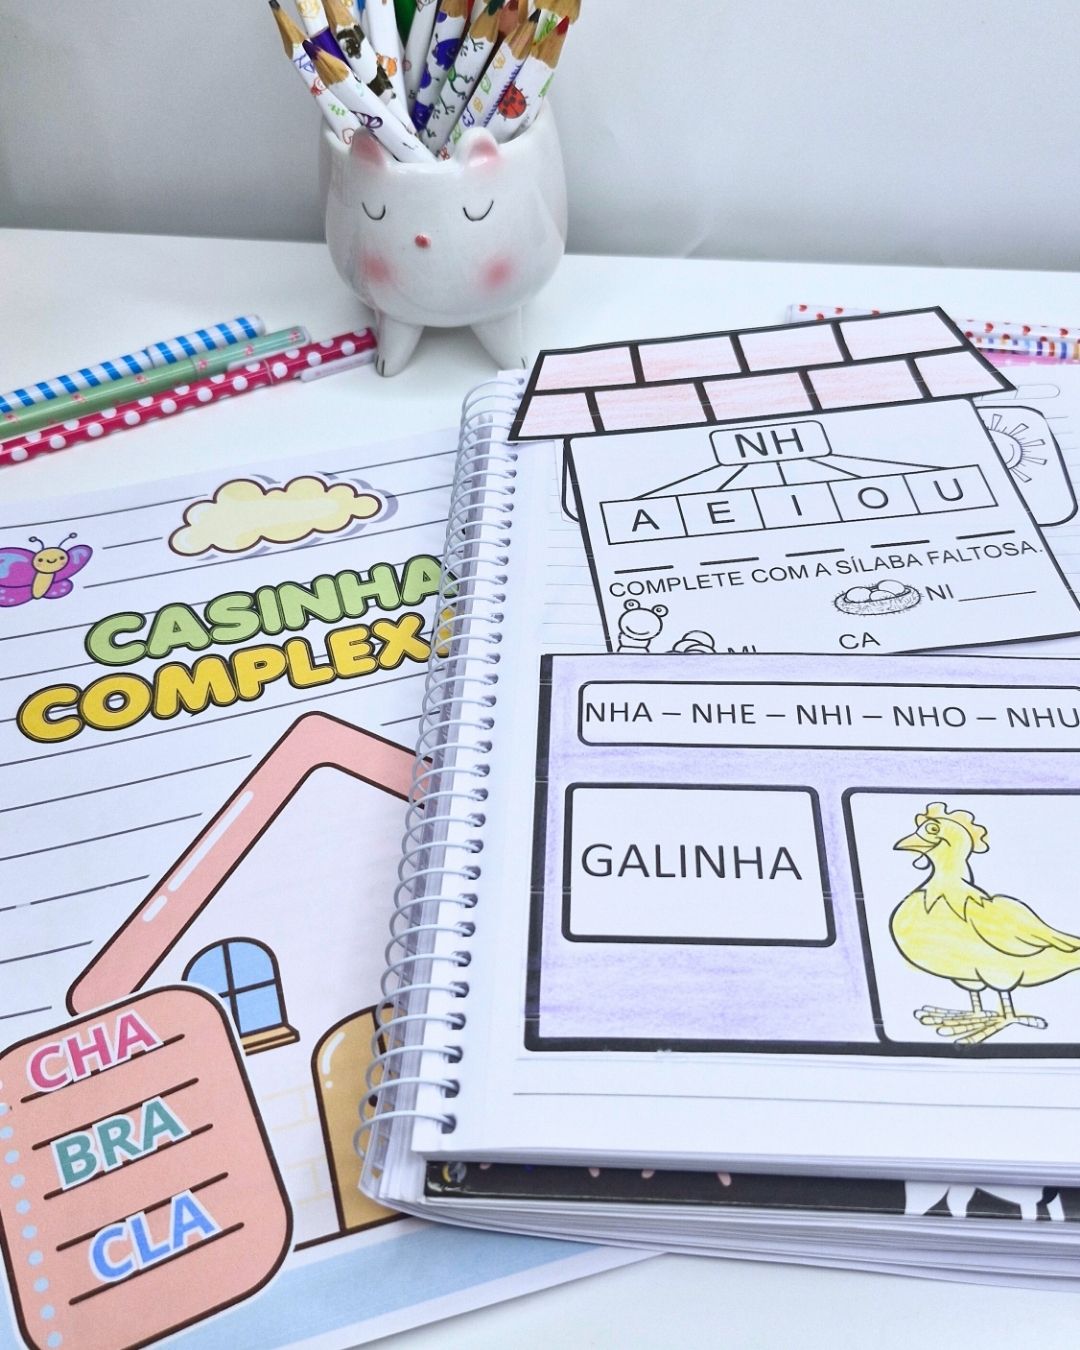 CASINHA
CHA
BRA
CLA
NH
A E I O U
COMPLETE COM A SÍLABA FALTOSA.
NI ______
CA
NHA – NHE – NHI – NHO – NHU
GALINHA